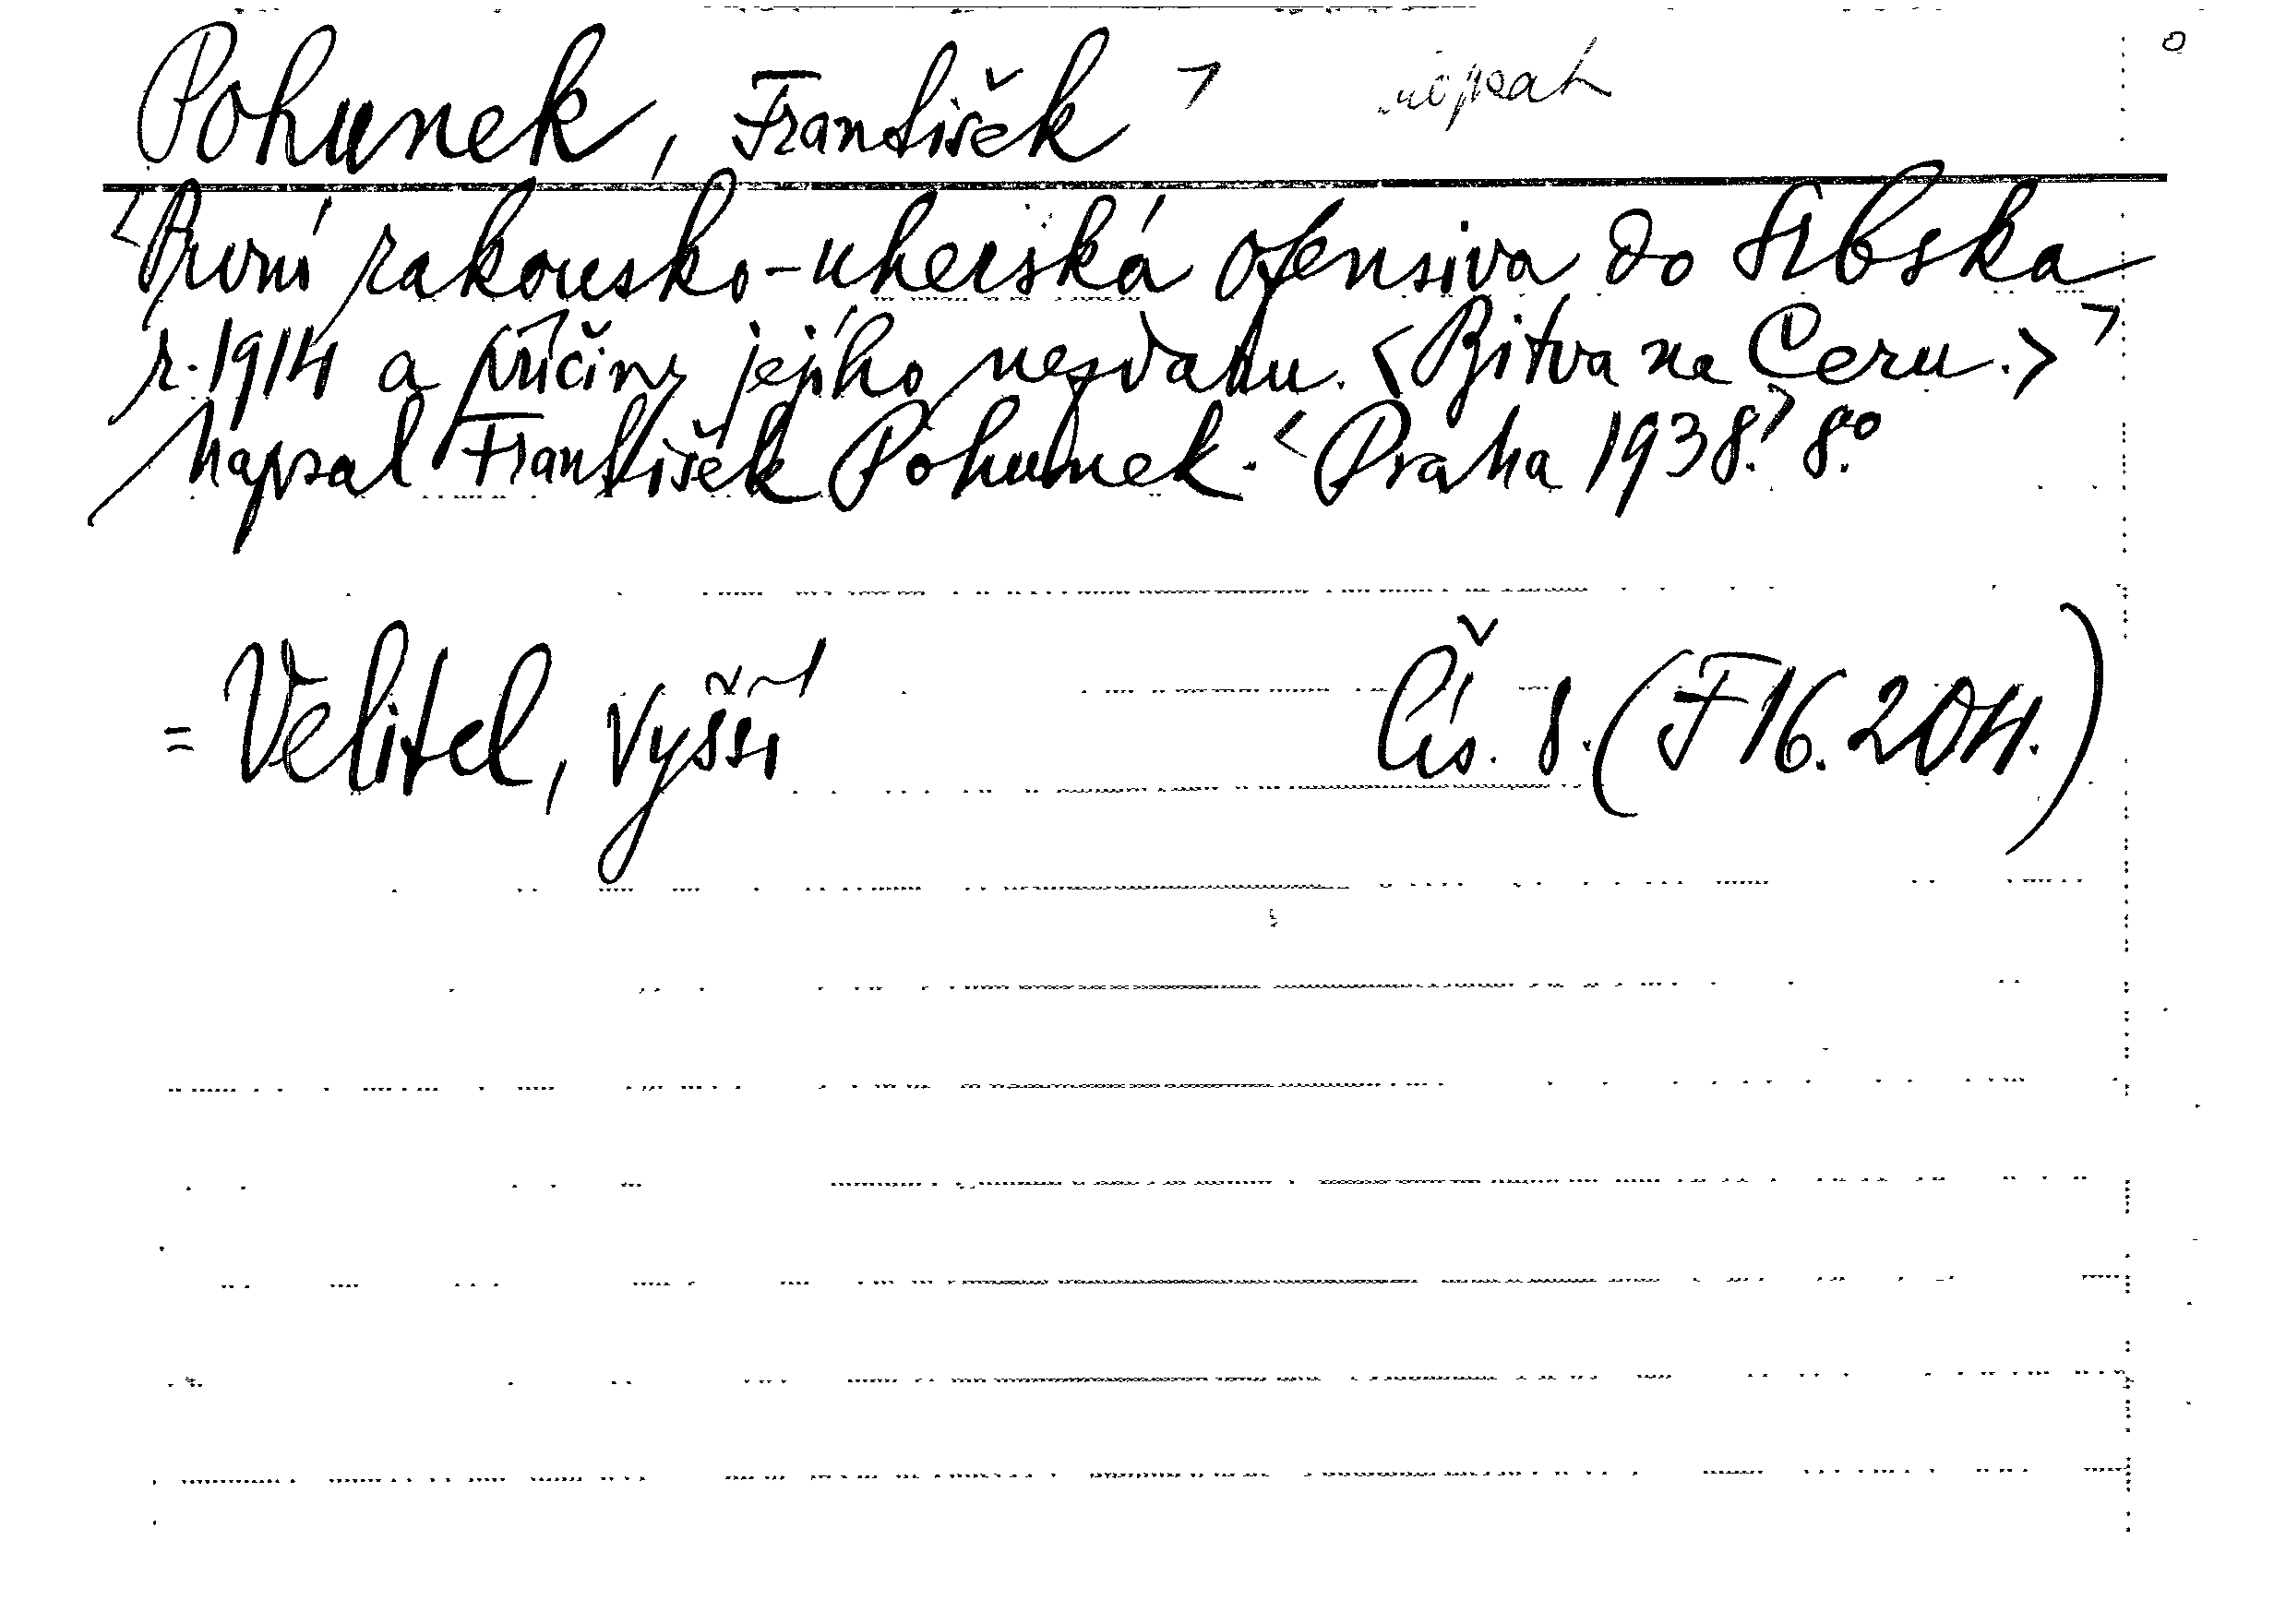 Pohunek, František >
<První rakousko-uherská ofensiva do Srbska
r. 1914 a příčiny jejího nezdaru. <Bitva na Ceru.>>
Napsal František Pohunek. <Praha 1938.> 8.°
= Velitel, vyšší Čís. 8. (F 16.204.)